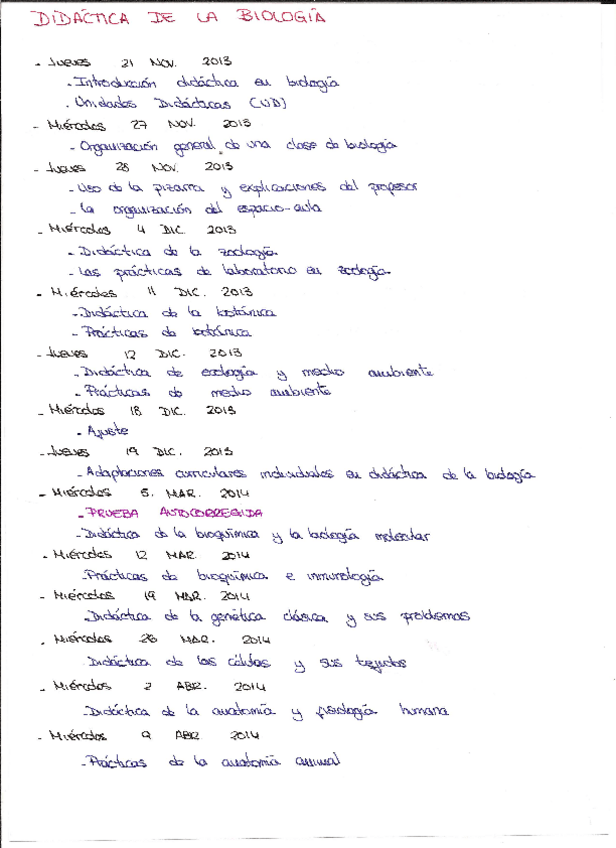 DIDÁCTICA DE LA BIOLOGÍA
- Jueves 21 NOV. 2013
- Introducción didáctica en biología
- Unidades Didácticas (UD)
- Miércoles 27 NOV. 2013
- Organización general de una clase de biología
- Jueves 28 NOV. 2013
- Uso de la pizarra y explicaciones del profesor
- La organización del espacio-aula
- Miércoles 4 DIC. 2013
- Didáctica de la zoología
- Las prácticas de laboratorio en zoología
- Miércoles 11 DIC. 2013
- Didáctica de la botánica
- Prácticas de botánica
- Jueves 12 DIC. 2013
- Didáctica de ecología y medio ambiente
- Prácticas de medio ambiente
- Miércoles 18 DIC. 2013
- Ajuste
- Jueves 19 DIC. 2013
- Adaptaciones curriculares individuales en didáctica de la biología
- Miércoles 5. MAR. 2014
- PRUEBA AUTOCORREGIDA
- Didáctica de la bioquímica y la biología molecular
- Miércoles 12 MAR. 2014
- Prácticas de bioquímica e inmunología
- Miércoles 19 MAR. 2014
- Didáctica de la genética clásica y sus problemas
- Miércoles 26 MAR. 2014
Didáctica de las células y sus tejidos
- Miércoles 2 ABR. 2014
- Didáctica de la anatomía y fisiología humana
- Miércoles 9 ABR 2014
- Prácticas de la anatomía animal